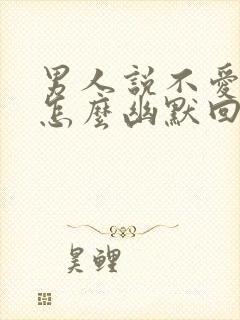 男人說不愛
怎麼幽默回
昊鲤